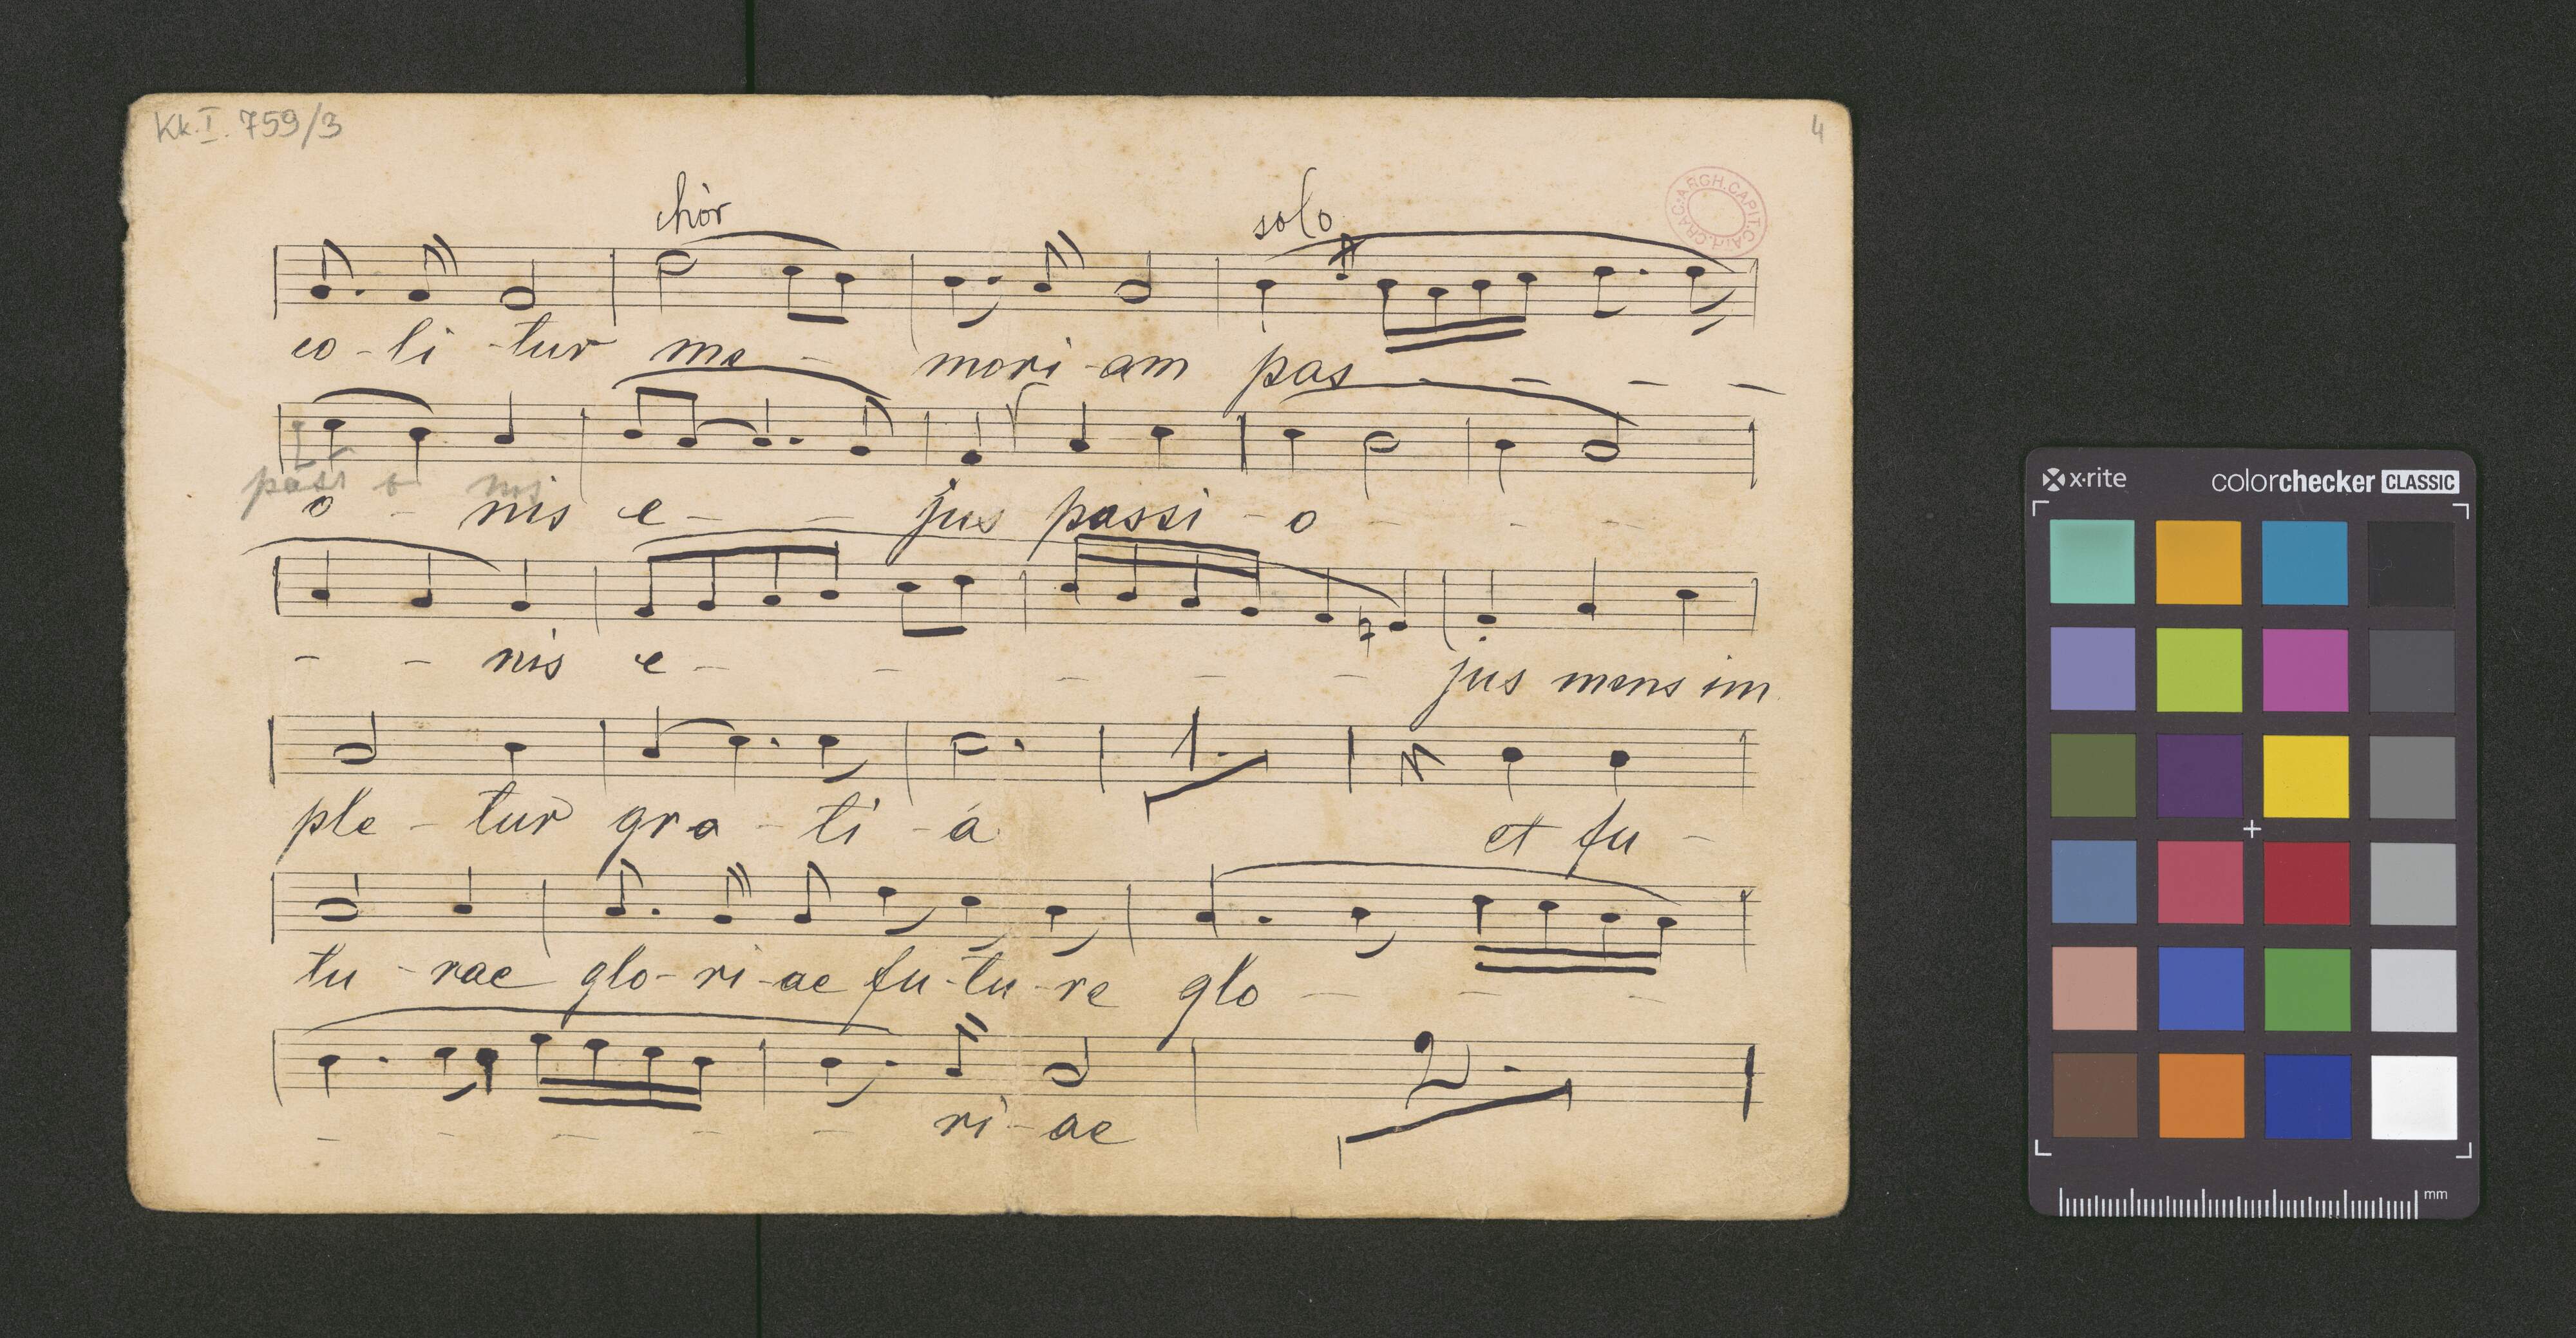 Kk. I. 759/3
4
chòr solo
co-li-tur me - mori-am pas - - - -
pas o nis
o - nis e - - jus passi - o - - -
- - nis e - - - - - jus mens im
ple - tur gra - ti - á et fu -
1.
tu - rae glo-ri-ae fu-tu-re glo - - -
- - - - - ri - ae
2.
x·rite colorchecker CLASSIC
mm